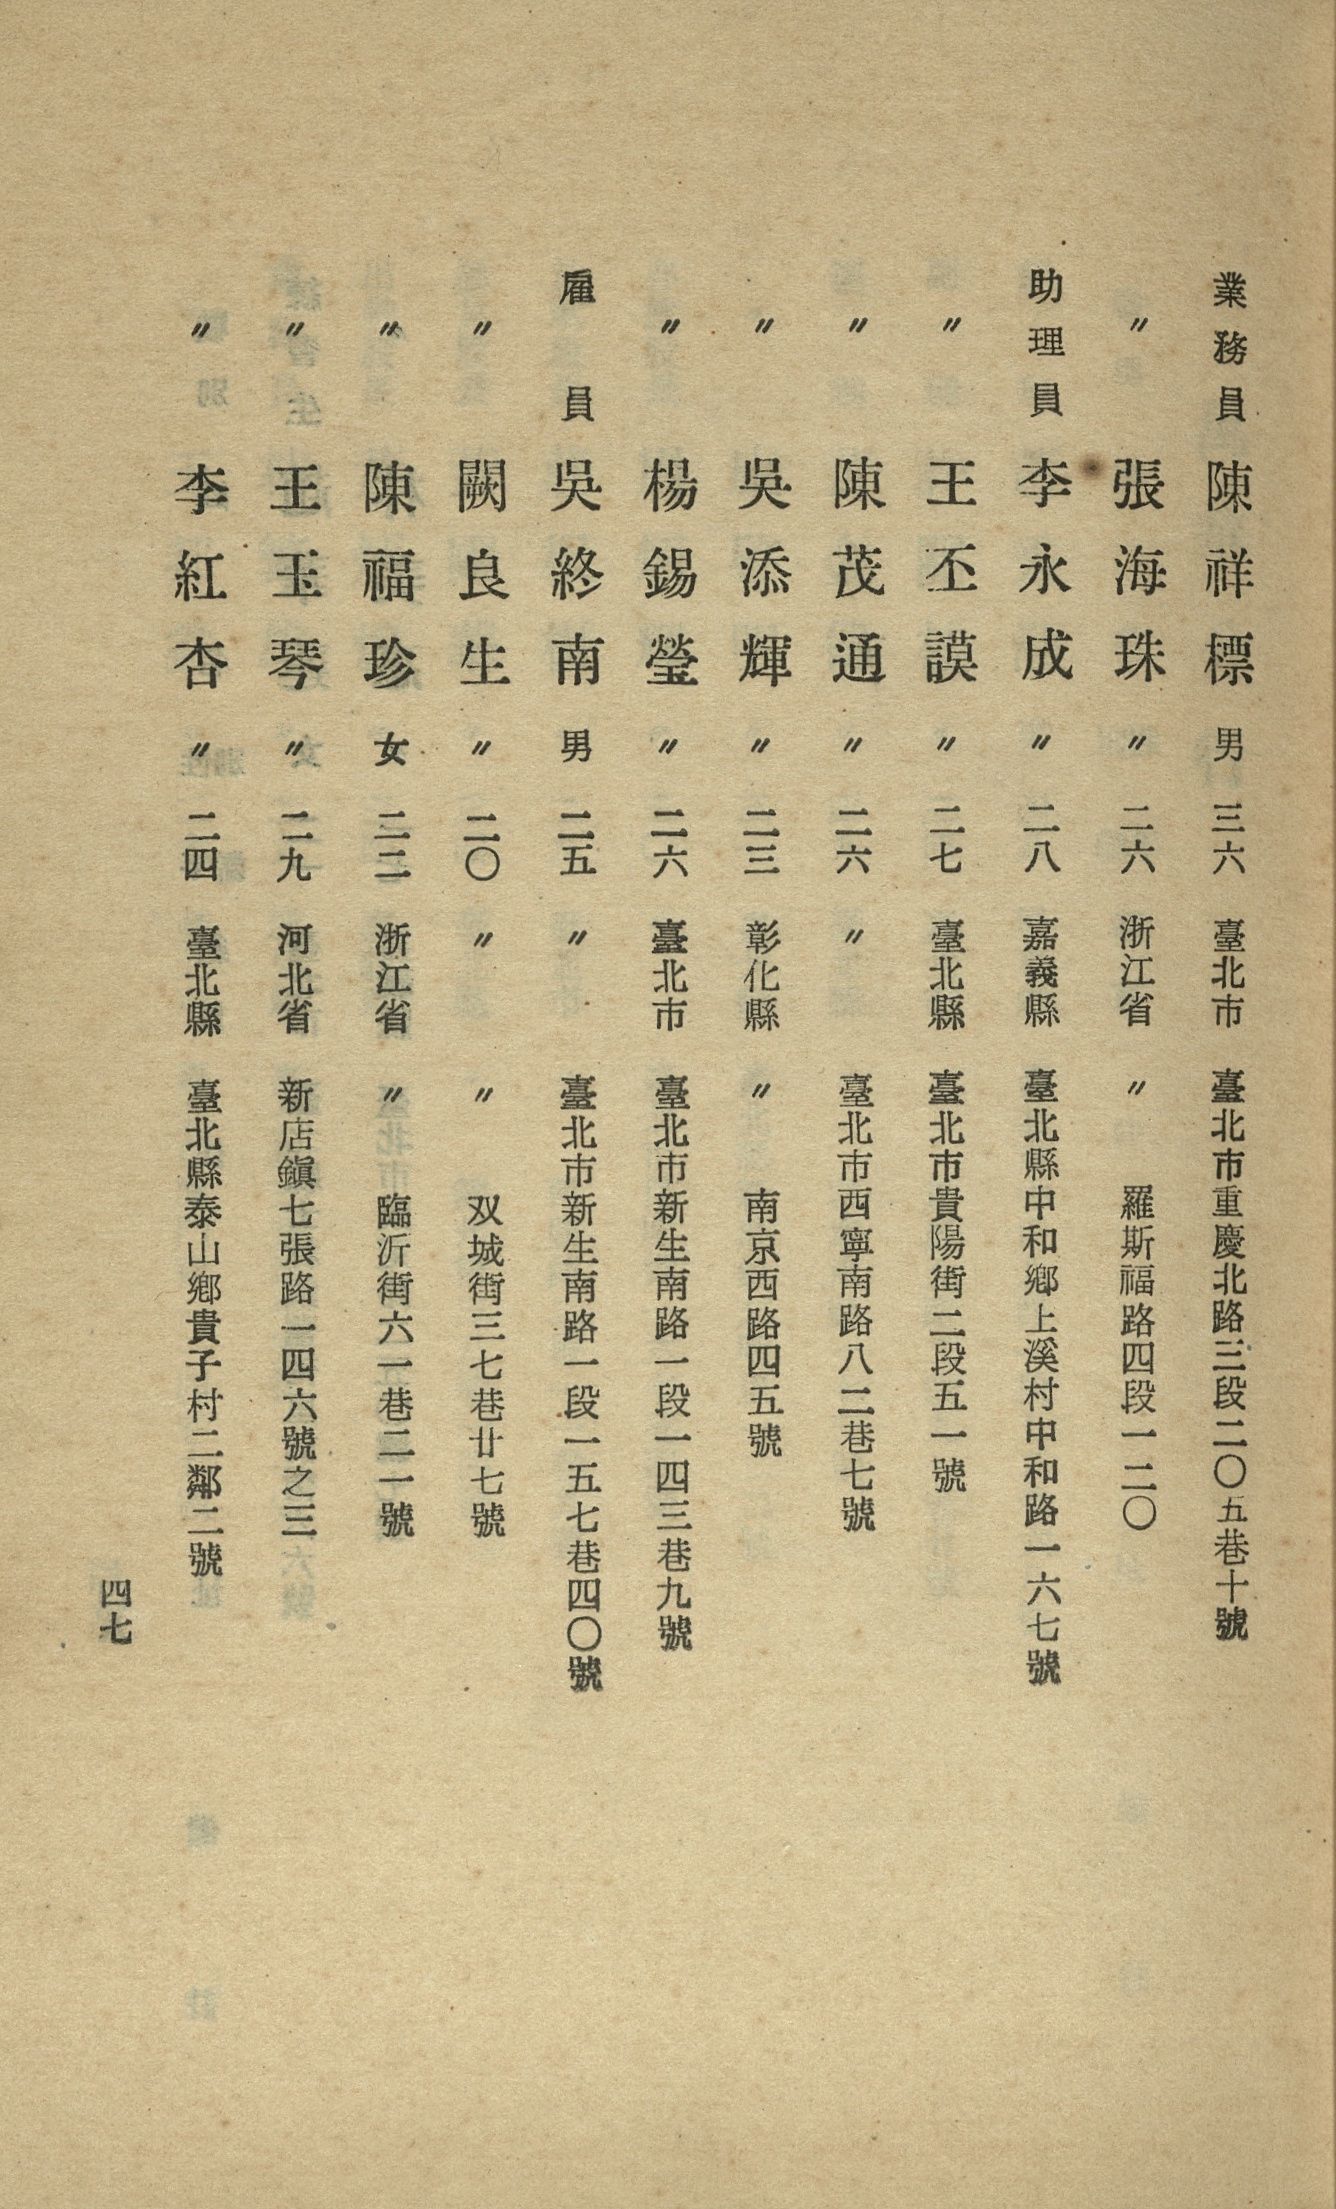 業務員 陳祥標 男 三六 臺北市 臺北市重慶北路三段二〇五巷十號
〃 張海珠 〃 二六 浙江省 〃 羅斯福路四段一二〇
助理員 李永成 〃 二八 嘉義縣 臺北縣中和鄉上溪村中和路一六七號
〃 王丕謨 〃 二七 臺北縣 臺北市貴陽街二段五一號
〃 陳茂通 〃 二六 〃 臺北市西寧南路八二巷七號
〃 吳添輝 〃 二三 彰化縣 〃 南京西路四五號
〃 楊錫瑩 〃 二六 臺北市 臺北市新生南路一段一四三巷九號
雇員 吳終南 男 二五 〃 臺北市新生南路一段一五七巷四〇號
〃 闕良生 〃 二〇 〃 〃 双城街三七巷廿七號
〃 陳福珍 女 二二 浙江省 〃 臨沂街六一巷二一號
〃 王玉琴 〃 二九 河北省 新店鎭七張路一四六號之三
〃 李紅杏 〃 二四 臺北縣 臺北縣泰山鄉貴子村二鄰二號
四七